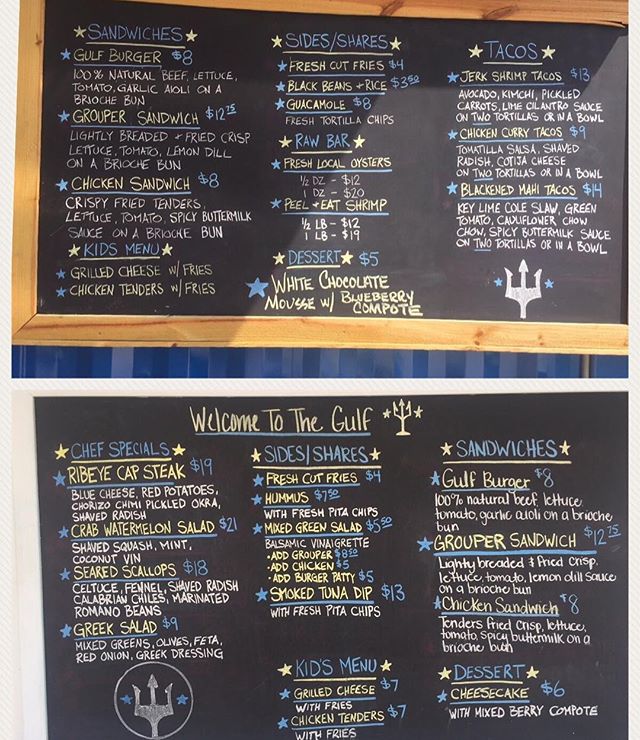 SANDWICHES
GULF BURGER $8
100% NATURAL BEEF, LETTUCE,
TOMATO, GARLIC AIOLI ON A
BRIOCHE BUN
GROUPER SANDWICH $12.75
LIGHTLY BREADED + FRIED CRISP
LETTUCE, TOMATO, LEMON DILL
ON A BRIOCHE BUN
CHICKEN SANDWICH $8
CRISPY FRIED TENDERS,
LETTUCE, TOMATO, SPICY BUTTERMILK
SAUCE ON A BRIOCHE BUN
KIDS MENU
GRILLED CHEESE W/ FRIES
CHICKEN TENDERS W/ FRIES
SIDES/SHARES
FRESH CUT FRIES $4
BLACK BEANS + RICE $3.50
GUACAMOLE $8
FRESH TORTILLA CHIPS
RAW BAR
FRESH LOCAL OYSTERS
1/2 DZ - $12
1 DZ - $20
PEEL + EAT SHRIMP
1/2 LB - $12
1 LB - $19
DESSERT $5
WHITE CHOCOLATE
MOUSSE W/ BLUEBERRY
COMPOTE
TACOS
JERK SHRIMP TACOS $13
AVOCADO, KIMCHI, PICKLED
CARROTS, LIME CILANTRO SAUCE
ON TWO TORTILLAS OR IN A BOWL
CHICKEN CURRY TACOS $9
TOMATILLA SALSA, SHAVED
RADISH, COTIJA CHEESE
ON TWO TORTILLAS OR IN A BOWL
BLACKENED MAHI TACOS $14
KEY LIME COLE SLAW, GREEN
TOMATO, CAULIFLOWER CHOW
CHOW, SPICY BUTTERMILK SAUCE
ON TWO TORTILLAS OR IN A BOWL
Welcome To The Gulf
CHEF SPECIALS
RIBEYE CAP STEAK $19
BLUE CHEESE, RED POTATOES,
CHORIZO CHIMI PICKLED OKRA,
SHAVED RADISH
CRAB WATERMELON SALAD $21
SHAVED SQUASH, MINT,
COCONUT VIN
SEARED SCALLOPS $18
CELTUCE, FENNEL, SHAVED RADISH
CALABRIAN CHILES, MARINATED
ROMANO BEANS
GREEK SALAD $9
MIXED GREENS, OLIVES, FETA,
RED ONION, GREEK DRESSING
SIDES/SHARES
FRESH CUT FRIES $4
HUMMUS $7.50
WITH FRESH PITA CHIPS
MIXED GREEN SALAD $5.50
BALSAMIC VINAIGRETTE
• ADD GROUPER $8.50
• ADD CHICKEN $5
• ADD BURGER PATTY $5
SMOKED TUNA DIP $13
WITH FRESH PITA CHIPS
KID'S MENU
GRILLED CHEESE $7
WITH FRIES
CHICKEN TENDERS $7
WITH FRIES
SANDWICHES
Gulf Burger $8
100% natural beef, lettuce,
tomato, garlic aioli on a brioche
bun
GROUPER SANDWICH $12.75
Lightly breaded & fried crisp,
lettuce, tomato, lemon dill sauce
on a brioche bun
Chicken Sandwich $8
Tenders Fried Crisp, lettuce,
tomato, spicy buttermilk on a
brioche bun
DESSERT
CHEESECAKE $6
WITH MIXED BERRY COMPOTE